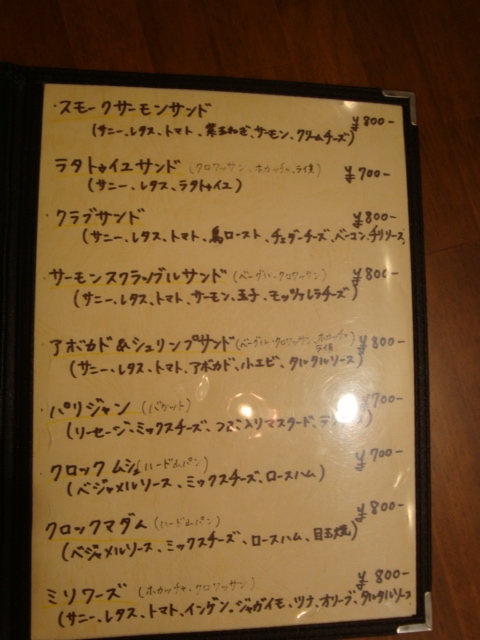 ・スモークサーモンサンド ¥800-
(サニー、レタス、トマト、紫玉ねぎ、サーモン、クリームチーズ)
ラタトゥイユサンド (クロワッサン、ホカッチャ、ライ麦) ¥700-
(サニー、レタス、ラタトゥイユ)
クラブサンド ¥800-
(サニー、レタス、トマト、鳥ロースト、チェダーチーズ、ベーコン、チリソース)
サーモンスクランブルサンド (ベーグル・クロワッサン) ¥800-
(サニー、レタス、トマト、サーモン、玉子、モッツァレラチーズ)
アボカド&シュリンプサンド (ベーグル・クロワッサン、ホカッチャ ライ麦) ¥800-
(サニー、レタス、トマト、アボカド、小エビ、タルタルソース)
パリジャン (バケット) ¥700-
(リーセージ、ミックスチーズ、つぶ入りマスタード、
クロックムシュ (ハード山パン) ¥700-
(ベジャメルソース、ミックスチーズ、ロースハム)
クロックマダム (ハード山パン) ¥800-
(ベジャメルソース、ミックスチーズ、ロースハム、目玉焼)
ミソワーズ (ホカッチャ、クロワッサン) ¥800-
(サニー、レタス、トマト、インゲン、ジャガイモ、ツナ、オリーブ、タルタルソース